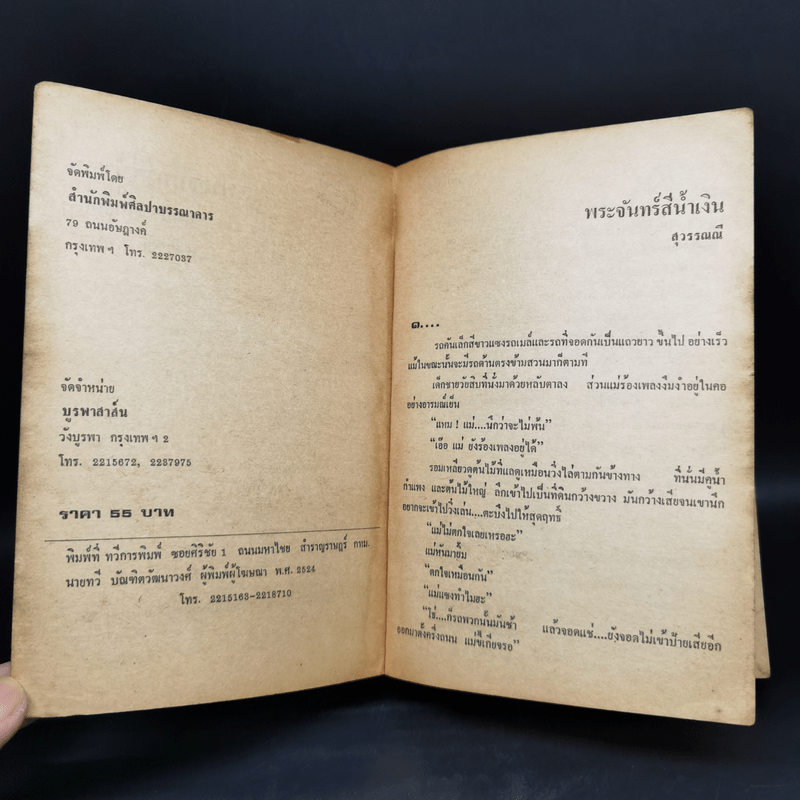 จัดพิมพ์โดย
สำนักพิมพ์ศิลปาบรรณาคาร
79 ถนนอัษฎางค์
กรุงเทพฯ โทร. 2227037
จัดจำหน่าย
บูรพาสาส์น
วังบูรพา กรุงเทพฯ 2
โทร. 2215672, 2237975
ราคา 55 บาท
พิมพ์ที่ ทวีการพิมพ์ ซอยศิริชัย 1 ถนนมหาไชย สำราญราษฎร์ กทม.
นายทวี บัณฑิตวัฒนาวงศ์ ผู้พิมพ์ผู้โฆษณา พ.ศ. 2524
โทร. 2215163-2218710
พระจันทร์สีน้ำเงิน
สุวรรณณี
๑....
รถคันเล็กสีขาวแซงรถเมล์และรถที่จอดกันเป็นแถวยาว ขึ้นไป อย่างเร็ว
แม้ในขณะนั้นจะมีรถด้านตรงข้ามสวนมาก็ตามที
เด็กชายวัยสิบที่นั่งมาด้วยหลับตาลง ส่วนแม่ร้องเพลงงึมงำอยู่ในคอ
อย่างอารมณ์เย็น
“แหม ! แม่....นึกว่าจะไม่พ้น”
“เอ๊อ แม่ ยังร้องเพลงอยู่ได้”
รอมเหลียวดูต้นไม้ที่แลดูเหมือนวิ่งไล่ตามกันข้างทาง ที่นั่นมีคูน้ำ
กำแพง และต้นไม้ใหญ่ ลึกเข้าไปเป็นที่ดินกว้างขวาง มันกว้างเสียจนเขานึก
อยากจะเข้าไปวิ่งเล่น....ตะบึงไปให้สุดฤทธิ์
“แม่ไม่ตกใจเลยเหรอฮะ”
แม่หันมายิ้ม
“ตกใจเหมือนกัน”
“แม่แซงทำไมฮะ”
“โธ่....ก็รถพวกนั้นมันช้า แล้วจอดแช่....ยังจอดไม่เข้าป้ายเสียอีก
ออกมาตั้งครึ่งถนน แม่ขี้เกียจรอ”